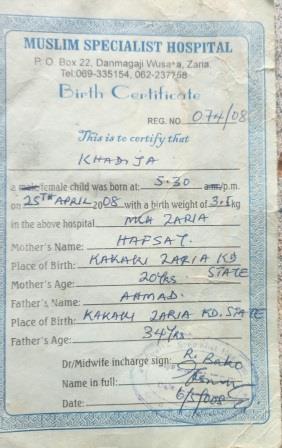 MUSLIM SPECIALIST HOSPITAL
P. O. Box 22, Danmagaji Wusasa, Zaria.
Tel:069-335154, 062-237758
Birth Certificate
REG. NO 074/08
This is to certify that
KHADIJA
a male female child was born at: 5.30 a.m/p.m.
on 25TH APRIL 2008 with a birth weight of 3.1kg
in the above hospital MSH ZARIA
Mother's Name: HAFSAT.
Place of Birth: KAKAKI ZARIA KD STATE
Mother's Age: 20yrs
Father's Name: AHMAD.
Place of Birth: KAKAKI ZARIA KD. STATE
Father's Age: 34yrs
Dr/Midwife incharge sign: R. Bako
Name in full:
Date: 6/5/008